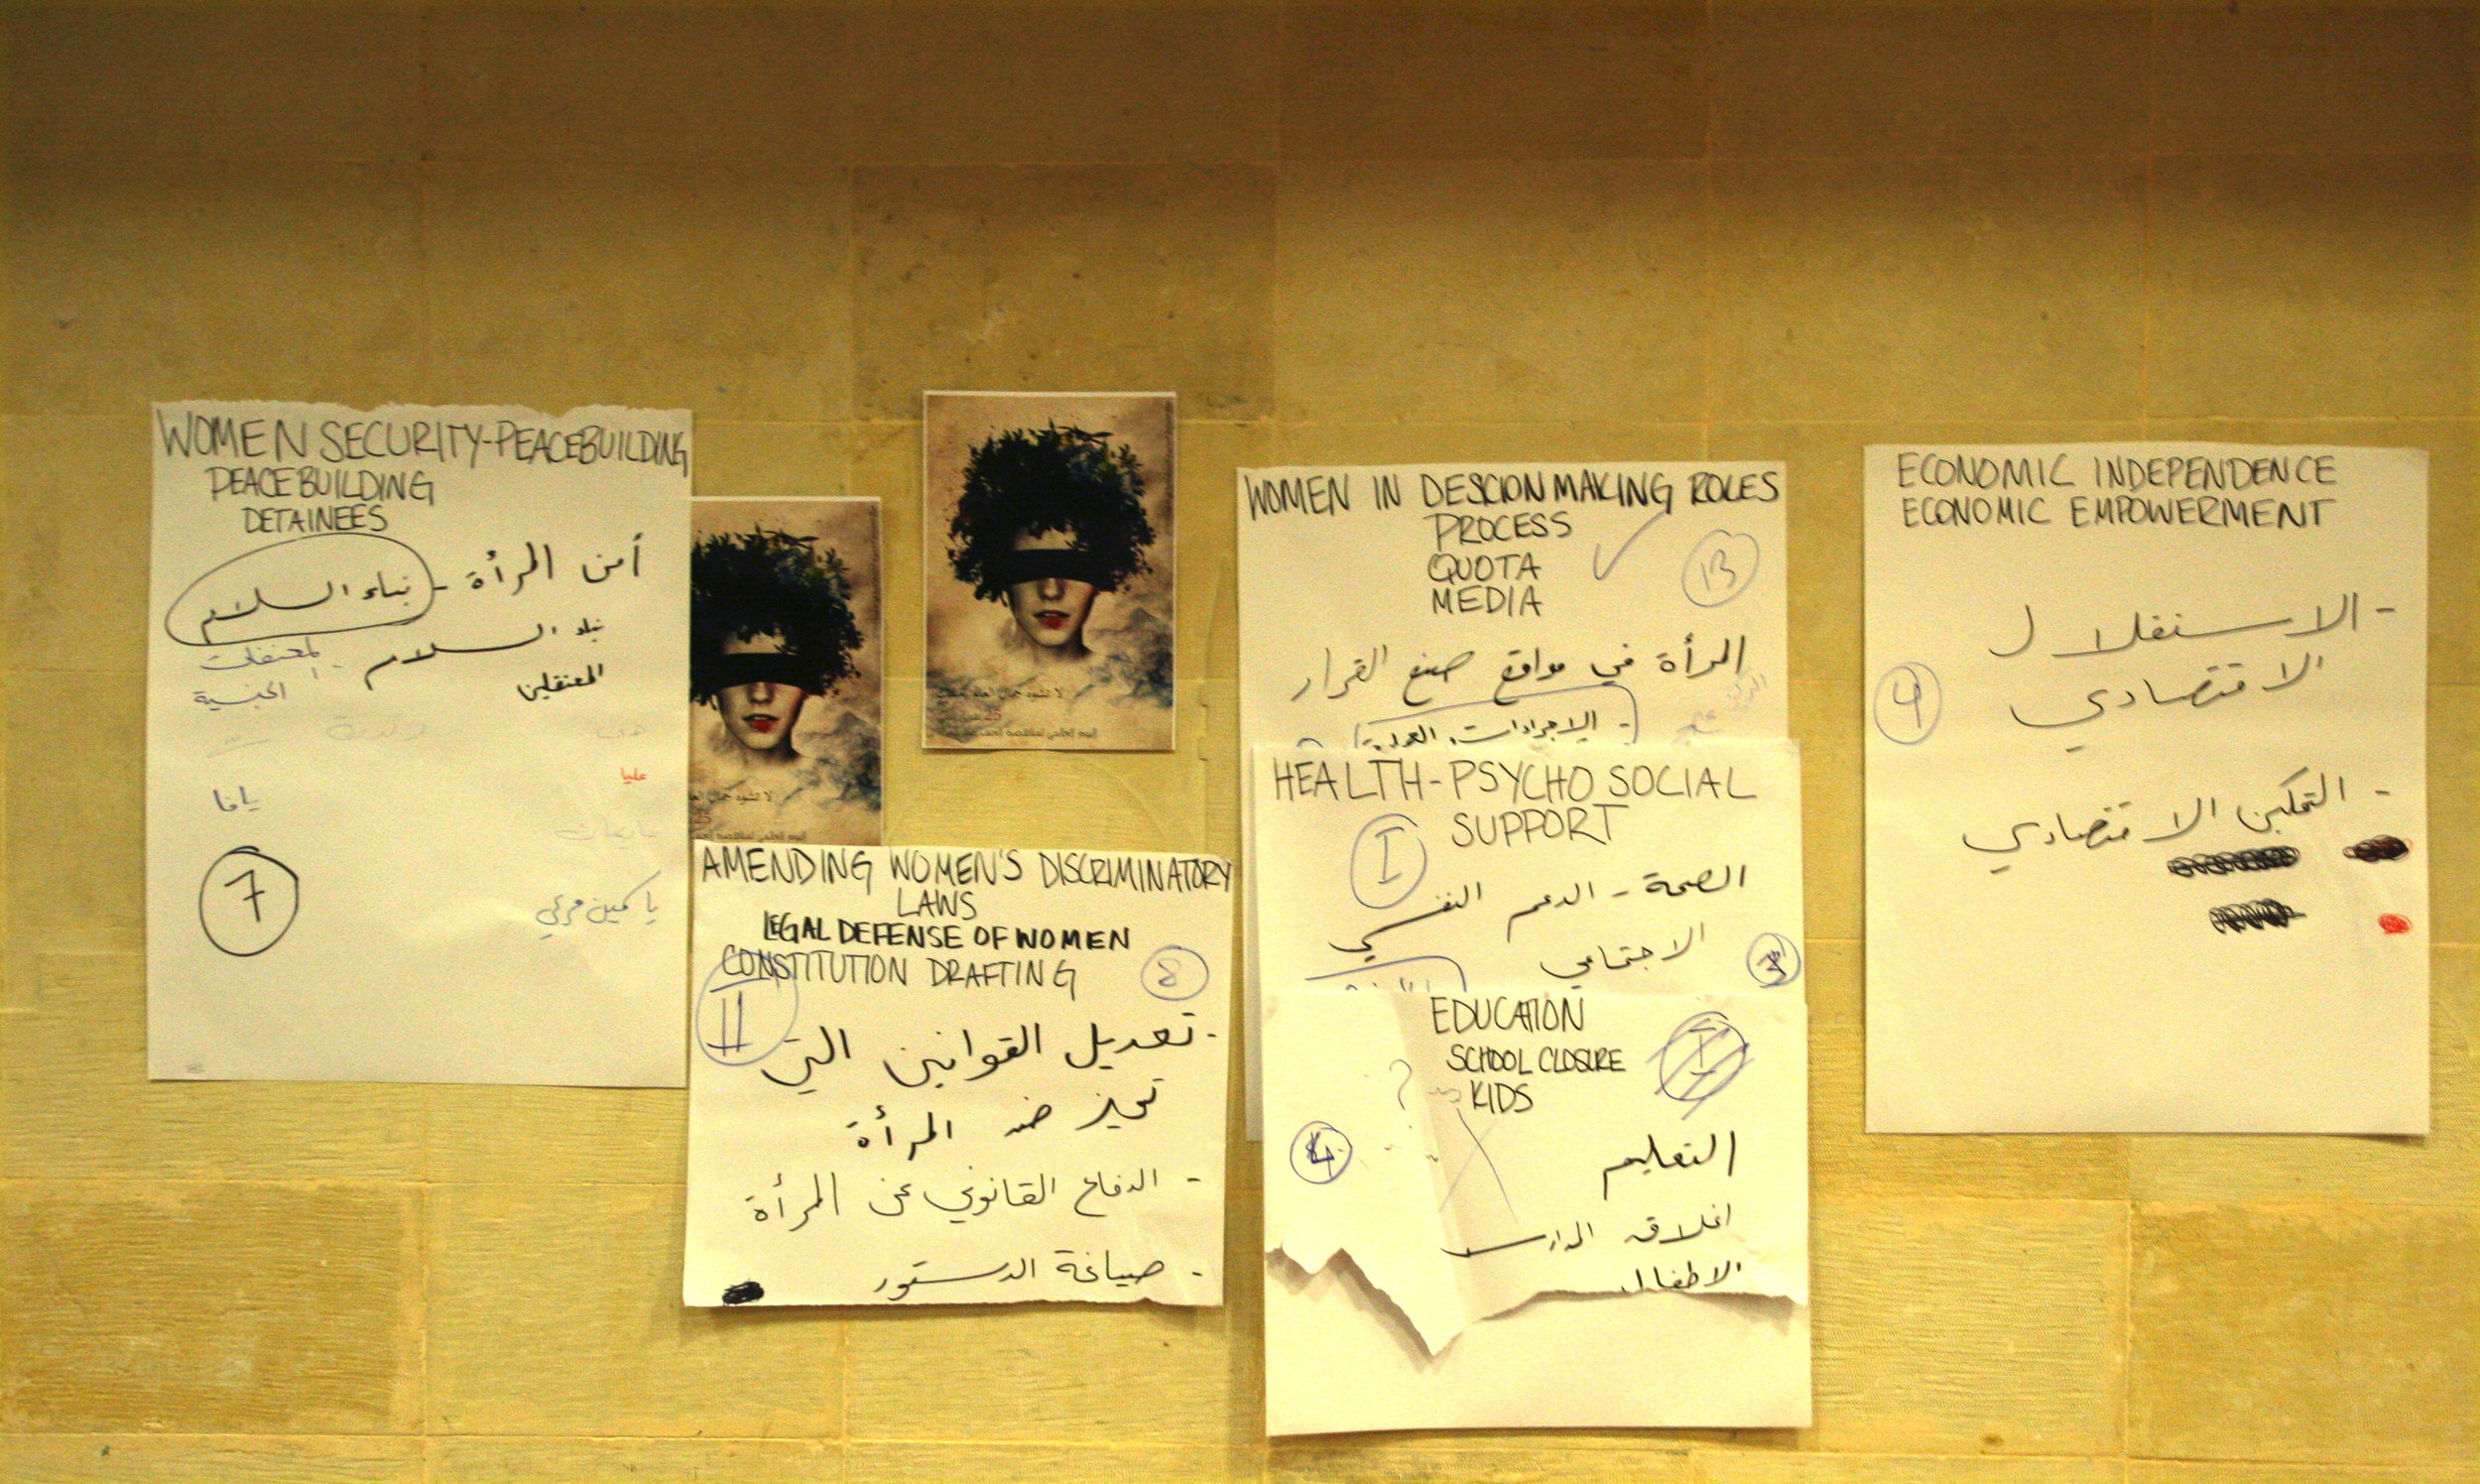 WOMEN SECURITY-PEACEBUILDING
PEACEBUILDING
DETAINEES
أمن المرأة - بناء السلام
بناء السلام
المعتقلين
المعتقلات
الجنسية
عليا
يافا
7
لا تشوه جمال العالم
25
اليوم العالمي لمناهضة العنف
لا تشوه جمال
25
اليوم العالمي لمناهضة العنف
AMENDING WOMEN'S DISCRIMINATORY
LAWS
LEGAL DEFENSE OF WOMEN
CONSTITUTION DRAFTING
8
11
- تعديل القوانين التي
تميز ضد المرأة
- الدفاع القانوني عن المرأة
- صياغة الدستور
WOMEN IN DESCION MAKING ROLES
PROCESS
QUOTA
MEDIA
13
المرأة في مواقع صنع القرار
- الاجراءات
HEALTH-PSYCHO SOCIAL
SUPPORT
I
الصحة - الدعم النفسي
الاجتماعي
3
EDUCATION
SCHOOL CLOSURE
KIDS
4
التعليم
اغلاق المدارس
الاطفال
ECONOMIC INDEPENDENCE
ECONOMIC EMPOWERMENT
- الاستقلال
الاقتصادي
- التمكين الاقتصادي